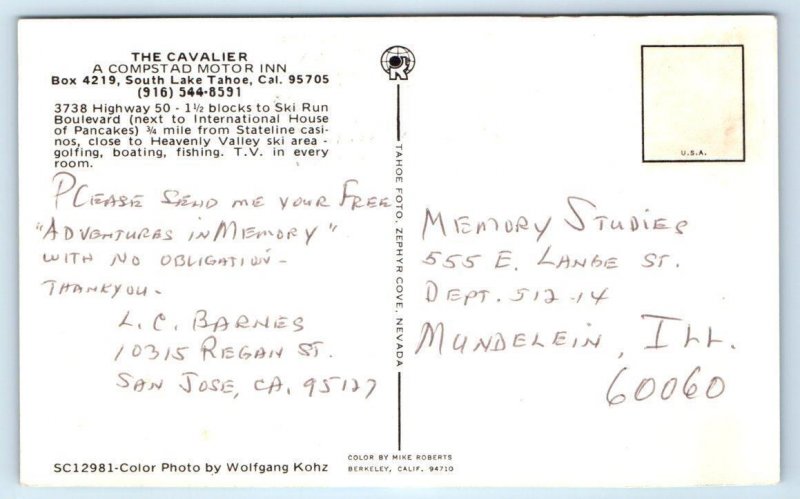 THE CAVALIER
A COMPSTAD MOTOR INN
Box 4219, South Lake Tahoe, Cal. 95705
(916) 544-8591
3738 Highway 50 - 1½ blocks to Ski Run
Boulevard (next to International House
of Pancakes) ¾ mile from Stateline casi-
nos, close to Heavenly Valley ski area -
golfing, boating, fishing. T.V. in every
room.
PLEASE SEND ME YOUR FREE
"ADVENTURES IN MEMORY"
WITH NO OBLIGATION-
THANKYOU-
L.C. BARNES
10315 REGAN ST.
SAN JOSE, CA. 95127
SC12981-Color Photo by Wolfgang Kohz
R
TAHOE FOTO, ZEPHYR COVE, NEVADA
COLOR BY MIKE ROBERTS
BERKELEY, CALIF. 94710
U.S.A.
MEMORY STUDIES
555 E. LANGE ST.
DEPT. 512-14
MUNDELEIN, ILL.
60060